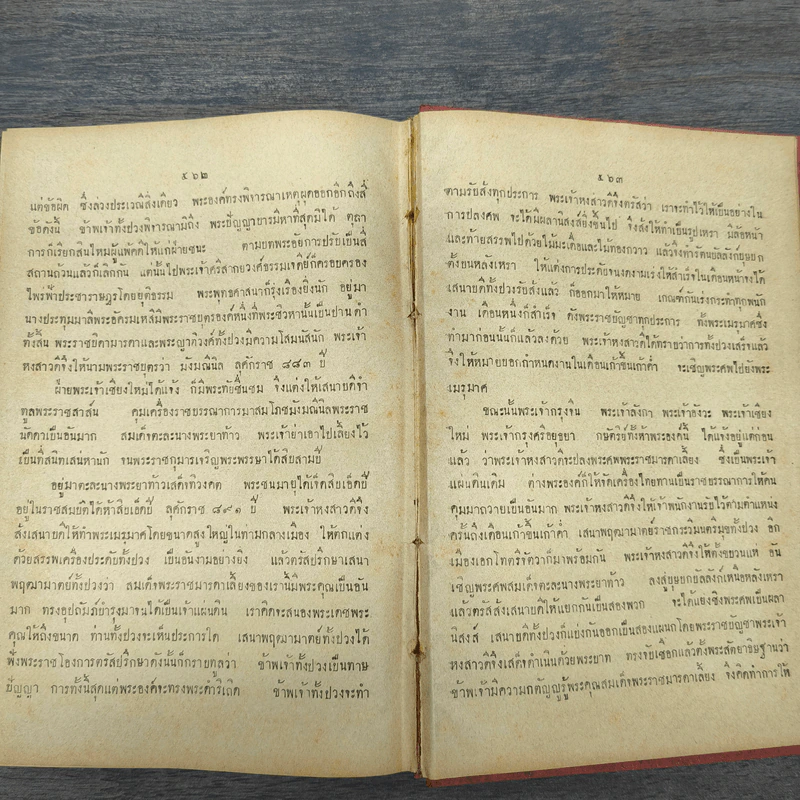 ๕๖๒
แต่ข้อผิด ซึ่งลวงประเวณีสิ่งเดียว พระองค์ทรงพิจารณาเหตุผุดออกอีกถึงสี่
ข้อดังนี้ ข้าพเจ้าทั้งปวงพิจารณามิถึง พระปัญญาบารมีหาที่สุดมิได้ ตุลา
การก็เรียกสินไหมผู้แพ้คดีให้แก่ฝ่ายชนะ ตามบทพระอัยการปรับเป็นสี่
สถานถ้วนแล้วก็เลิกกัน แต่นั้นไปพระเจ้าศรีสากยวงศ์ธรรมเจดีย์ก็ครอบครอง
ไพร่ฟ้าประชาราษฎรโดยยุติธรรม พระพุทธศาสนาก็รุ่งเรืองยิ่งนัก อยู่มา
นางประทุมมาลีพระอัครมเหสีมีพระราชบุตรองค์หนึ่งที่พระชิวหานั้นเป็นปานดำ
ทั้งสิ้น พระราชบิดามารดาและพระญาติวงศ์ทั้งปวงมีความโสมนัสนัก พระเจ้า
หงสาวดีจึงให้นามพระราชบุตรว่า มังมณีนิล ลุศักราช ๘๘๓ ปี
ฝ่ายพระเจ้าเชียงใหม่ได้แจ้ง ก็มีพระทัยชื่นชม จึงแต่งให้เสนาบดีจำ
ทูลพระราชสาส์น คุมเครื่องราชบรรณาการมาสมโภชมังมณีนิลพระราช
นัดดาเป็นอันมาก สมเด็จตะละนางพระยาท้าว พระเจ้าย่าเอาไปเลี้ยงไว้
เป็นที่สนิทเสน่หานัก จนพระราชกุมารเจริญพระพรรษาได้สิบสามปี
อยู่มาตะละนางพระยาท้าวเสด็จทิวงคต พระชนมายุได้เจ็ดสิบเอ็ดปี
อยู่ในราชสมบัติได้ห้าสิบเอ็ดปี ลุศักราช ๘๙๑ ปี พระเจ้าหงสาวดีจึง
สั่งเสนาบดีให้ทำพระเมรุมาศโดยขนาดสูงใหญ่ในท่ามกลางเมือง ให้ตกแต่ง
ด้วยสรรพเครื่องประดับทั้งปวง เป็นอันงามอย่างยิ่ง แล้วตรัสปรึกษาเสนา
พฤฒามาตย์ทั้งปวงว่า สมเด็จพระราชมารดาเลี้ยงของเรานี้มีพระคุณเป็นอัน
มาก ทรงอุปถัมภ์บำรุงมาจนได้เป็นเจ้าแผ่นดิน เราคิดจะสนองพระเดชพระ
คุณให้ถึงขนาด ท่านทั้งปวงจะเห็นประการใด เสนาพฤฒามาตย์ทั้งปวงได้
ฟังพระราชโองการตรัสปรึกษาดังนั้นก็กราบทูลว่า ข้าพเจ้าทั้งปวงเป็นทาษ
ปัญญา การทั้งนี้สุดแต่พระองค์จะทรงพระดำริเถิด ข้าพเจ้าทั้งปวงจะทำ
๕๖๓
ตามรับสั่งทุกประการ พระเจ้าหงสาวดีจึงตรัสว่า เราจะทำไว้ให้เป็นอย่างใน
การปลงศพ จะได้มีผลานิสงส์ยิ่งขึ้นไป จึงสั่งให้ทำเป็นรูปเหรา มีล้อหน้า
และท้ายสรรพไปด้วยไม้มะเดื่อและไม้ทองกวาว แล้วจึงทำรัตนบัลลังก์บุษบก
ตั้งบนหลังเหรา ให้แต่งการประดับจงงดงามเร่งให้สำเร็จในเดือนหน้าจงได้
เสนาบดีทั้งปวงรับสั่งแล้ว ก็ออกมาให้หมาย เกณฑ์กันเร่งกระทำทุกพนัก
งาน เดือนหนึ่งก็สำเร็จ ดังพระราชบัญชาทุกประการ ทั้งพระเมรุมาศซึ่ง
ทำมาก่อนนั้นก็แล้วลงด้วย พระเจ้าหงสาวดีได้ทราบว่าการทั้งปวงเสร็จแล้ว
จึงให้หมายบอกกำหนดงานในเดือนเก้าขึ้นเก้าค่ำ จะเชิญพระศพไปยังพระ
เมรุมาศ
ขณะนั้นพระเจ้ากรุงจีน พระเจ้าลังกา พระเจ้าอังวะ พระเจ้าเชียง
ใหม่ พระเจ้ากรุงศรีอยุธยา กษัตริย์ทั้งห้าพระองค์นี้ ได้แจ้งอยู่แต่ก่อน
แล้ว ว่าพระเจ้าหงสาวดีจะปลงพระศพพระราชมารดาเลี้ยง ซึ่งเป็นพระเจ้า
แผ่นดินเดิม ต่างพระองค์ก็ให้จัดเครื่องไทยทานเป็นราชบรรณาการให้คน
คุมมาถวายเป็นอันมาก พระเจ้าหงสาวดีจึงให้เจ้าพนักงานรับไว้ตามตำแหน่ง
ครั้นถึงเดือนเก้าขึ้นเก้าค่ำ เสนาพฤฒามาตย์ราชกระวีมนตรีมุขทั้งปวง อีก
เมืองเอกโทตรีจัตวาก็มาพร้อมกัน พระเจ้าหงสาวดีจึงให้ตั้งขบวนแห่ อัน
เชิญพระศพสมเด็จตะละนางพระยาท้าว ลงสู่บุษบกบัลลังก์เหนือหลังเหรา
แล้วตรัสสั่งเสนาบดีให้แยกกันเป็นสองพวก จะได้แย่งชิงพระศพเป็นผลา
นิสงส์ เสนาบดีทั้งปวงก็แบ่งกันออกเป็นสองแผนกโดยพระราชบัญชาพระเจ้า
หงสาวดีจึงเสด็จดำเนินด้วยพระบาท ทรงจับเชือกแล้วตั้งพระสัตยาธิษฐานว่า
ข้าพเจ้ามีความกตัญญูรู้พระคุณสมเด็จพระราชมารดาเลี้ยง จึงคิดทำการให้